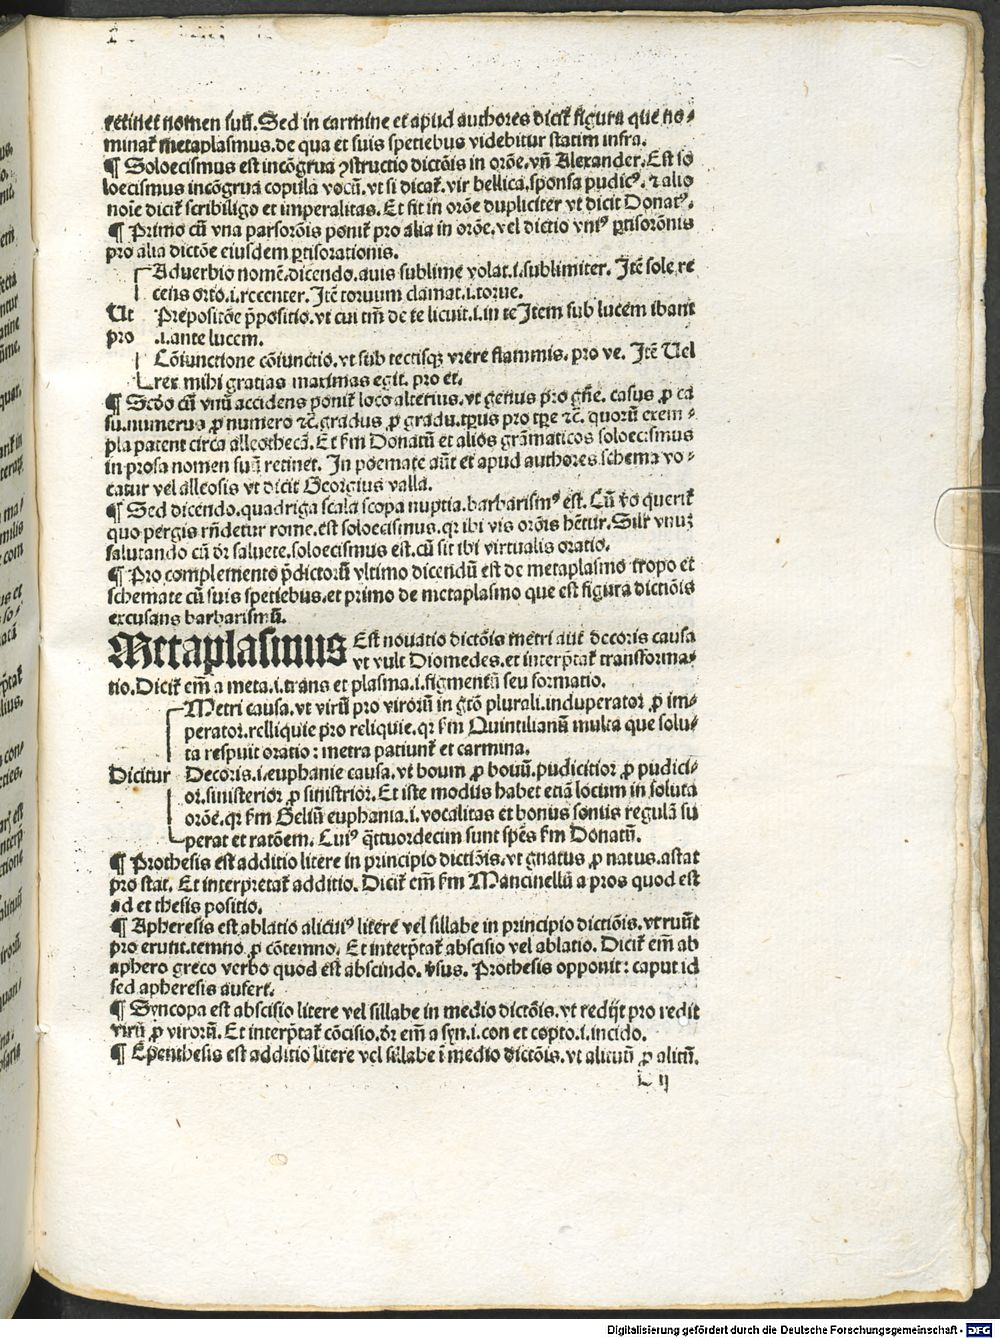 retinet nomen suū. Sed in carmine et apud authores dicit̄ figura que no⸗
minat̄ metaplasmus. de qua et suis spetiebus videbitur statim infra.
¶ Soloecismus est incōgrua ꝯstructio dictōis in orōe. vn̄ Alexander. Est so
loecismus incōgrua copula vocū. vt si dicat̄. vir bellica. sponsa pudicꝰ. ⁊ alio
noīe dicit̄ scribiligo et imperalitas. Et fit in orōe dupliciter vt dicit Donatꝰ.
¶ Primo cū vna parsorōis ponit̄ pro alia in orōe. vel dictio vniꝰ ꝑtisorōnis
pro alia dictōe eiusdem ꝑtisorationis.
Aduerbio nomē. dicendo. auis sublime volat. i. sublimiter. Itē sole re
cens orto. i. recenter. Itē toruum clamat. i. torue.
Ut Prepositōe p̄positio. vt cui tm̄ de te licuit. i. in te Item sub lucem ibant
pro .i. ante lucem.
Cōiunctione cōiunctio. vt sub tectisqꝫ vrere flammis. pro ve. Itē Uel
rex mihi gratias maximas egit. pro et.
¶ Scḋo cū vnū accidens ponit̄ loco alterius. vt genus pro gn̄e. casus ꝓ ca
su. numerus ꝓ numero ⁊c̄. gradus ꝓ gradu. tp̄us pro tp̄e ⁊c̄. quorū exem⸗
pla patent circa alleothecā. Et fm̄ Donatū et alios grāmaticos soloecismus
in prosa nomen suū retinet. In poemate aūt et apud authores schema vo⸗
catur vel alleosis vt dicit Georgius valla.
¶ Sed dicendo. quadriga scala scopa nuptia. barbarismꝰ est. Cū v̊o querit̄
quo pergis rn̄detur rome. est soloecismus. qꝛ ibi vis orōis hētur. Silr̄ vnuꝫ
salutando cū dr̄ saluete. soloecismus est. cū sit ibi virtualis oratio.
¶ Pro complemento p̄dictorū vltimo dicendū est de metaplasmo tropo et
schemate cū suis spetiebus. et primo de metaplasmo que est figura dictiōis
excusans barbarismū.
Metaplasmus Est nouatio dictōis metri aut decoris causa
vt vult Diomedes. et interp̄tat̄ transforma⸗
tio. Dicit̄ em̄ a meta. i. trans et plasma. i. figmentū seu formatio.
Metri causa. vt virū pro virorū in gtō plurali. induperator ꝓ im⸗
perator. relliquie pro reliquie. qꝛ fm̄ Quintilianū multa que solu⸗
ta respuit oratio: metra patiunt̄ et carmina.
Dicitur Decoris. i. euphanie causa. vt boum ꝓ bouū. pudicitior ꝓ pudici⸗
or. sinisterior ꝓ sinistrior. Et iste modus habet etiā locum in soluta
orōe. qꝛ fm̄ Geliū euphania. i. vocalitas et bonus sonus regulā su
perat et ratōem. Cuiꝰ q̄ttuordecim sunt spēs fm̄ Donatū.
¶ Prothesis est additio litere in principio dictiōis. vt gnatus ꝓ natus. astat
pro stat. Et interpretat̄ additio. Dicit̄ em̄ fm̄ Mancinellū a pros quod est
ad et thesis positio.
¶ Apheresis est ablatio alicuiꝰ litere vel sillabe in principio dictiōis. vt ruūt
pro erunt. temno ꝓ cōtemno. Et interp̄tat̄ abscisio vel ablatio. Dicit̄ em̄ ab
aphero greco verbo quod est abscindo. v̊sus. Prothesis opponit: caput id
sed apheresis aufert.
¶ Syncopa est abscisio litere vel sillabe in medio dictōis. vt redijt pro redit
virū ꝓ virorū. Et interp̄tat̄ cōcisio. dr̄ em̄ a syn. i. con et copto. i. incido.
¶ Epenthesis est additio litere vel sillabe ī medio dictōis. vt alituū ꝓ alitū.
ij
Digitalisierung gefördert durch die Deutsche Forschungsgemeinschaft - DFG